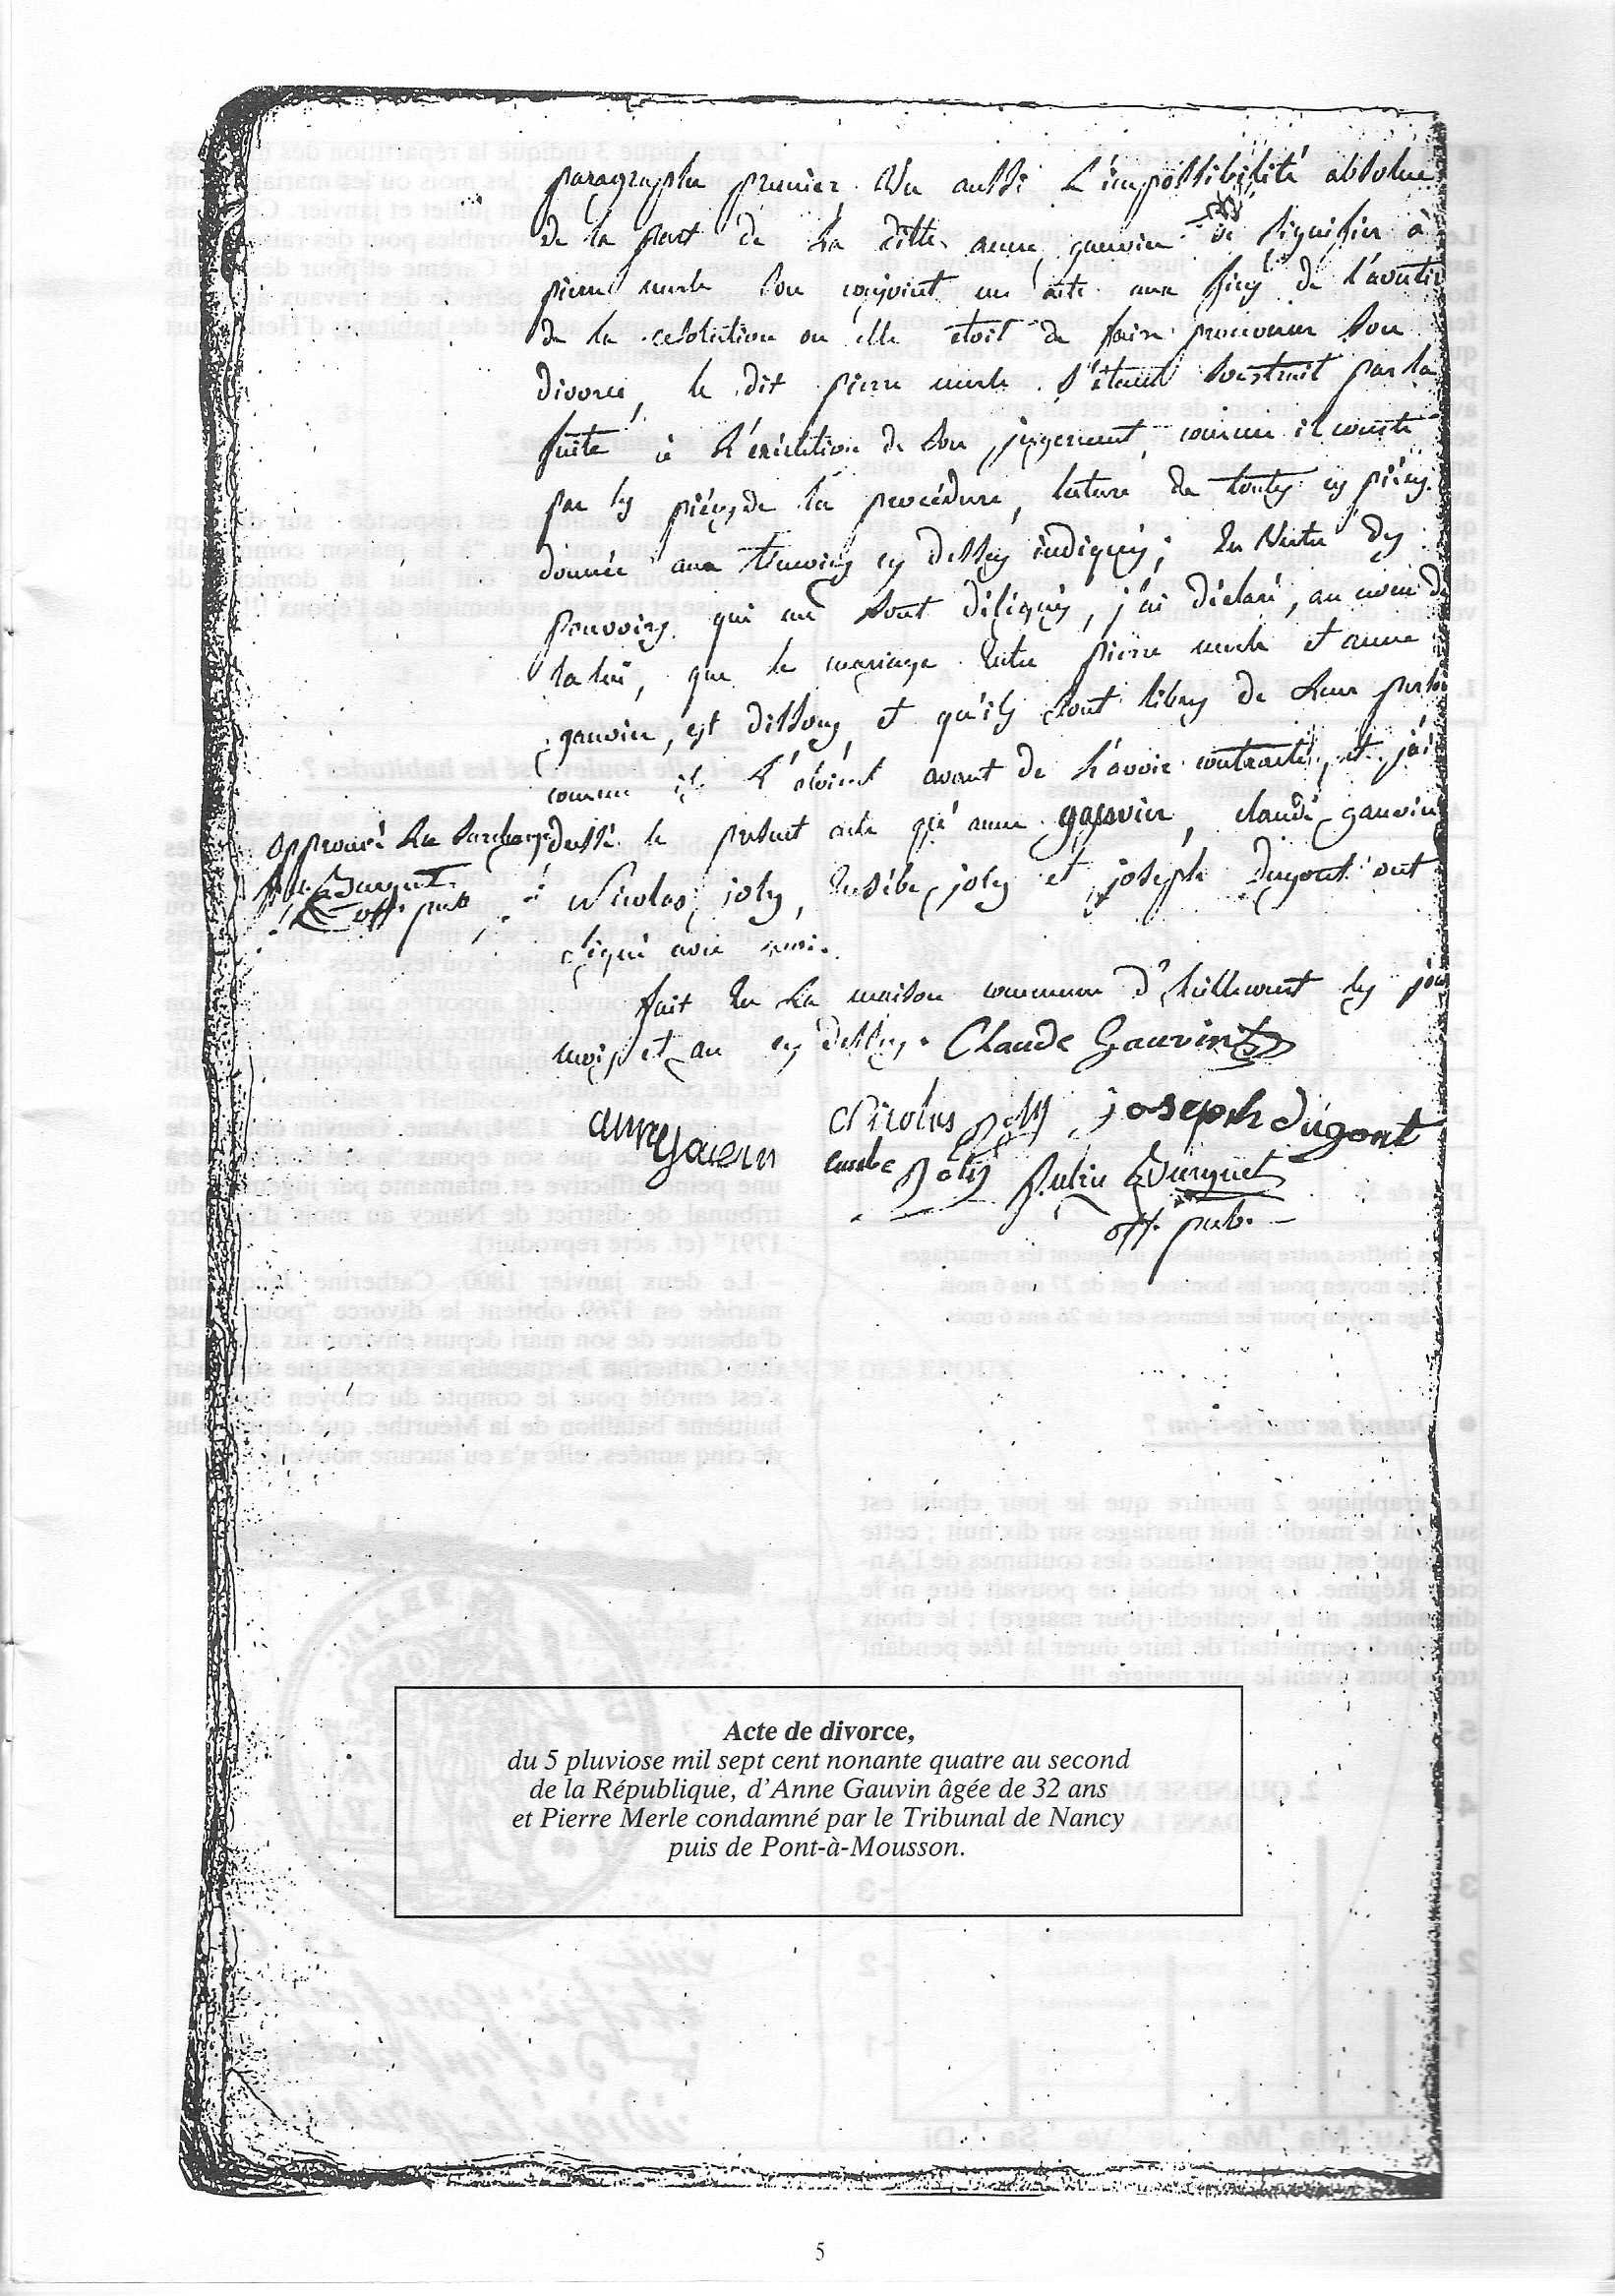 paragraphe premier, Vu aussi l'impossibilité absolue
de la part de la ditte anne gauvin de signifier à
pierre merle son conjoint un acte aux fins de l'avertir
de la resolution ou elle etoit de faire prononcer son
divorce, le dit pierre merle s'étant soustrait par la
fuite à l'éxécution de son jugement, comme il conste
par les pièces de la procédure, lecture de touttes ces pièces
donnée aux temoins cy dessus indiqués; En Vertu des
pouvoirs qui me sont délégués, j'ai déclaré, au nom de
la loi, que le mariage Entre pierre merle et anne
gauvin, est dissous, et qu'ils sont libres de leur personne
comme ils l'étoient avant de l'avoir contracté, et j'ai
dressé le présent acte qu'anne gauvin, claude gauvin
approuvé la surcharge
Nicolas joly, Eusébe joly et joseph dugont ont
off. pub.
signé avec moi.
fait En la maison commune d'heillecourt les jour
mois et an cy dessus. Claude Gauvin
anne gauvin Nicolas Joly joseph dugont
Eusebe Joly
off. pub.
Acte de divorce,
du 5 pluviose mil sept cent nonante quatre au second
de la République, d'Anne Gauvin âgée de 32 ans
et Pierre Merle condamné par le Tribunal de Nancy
puis de Pont-à-Mousson.
5